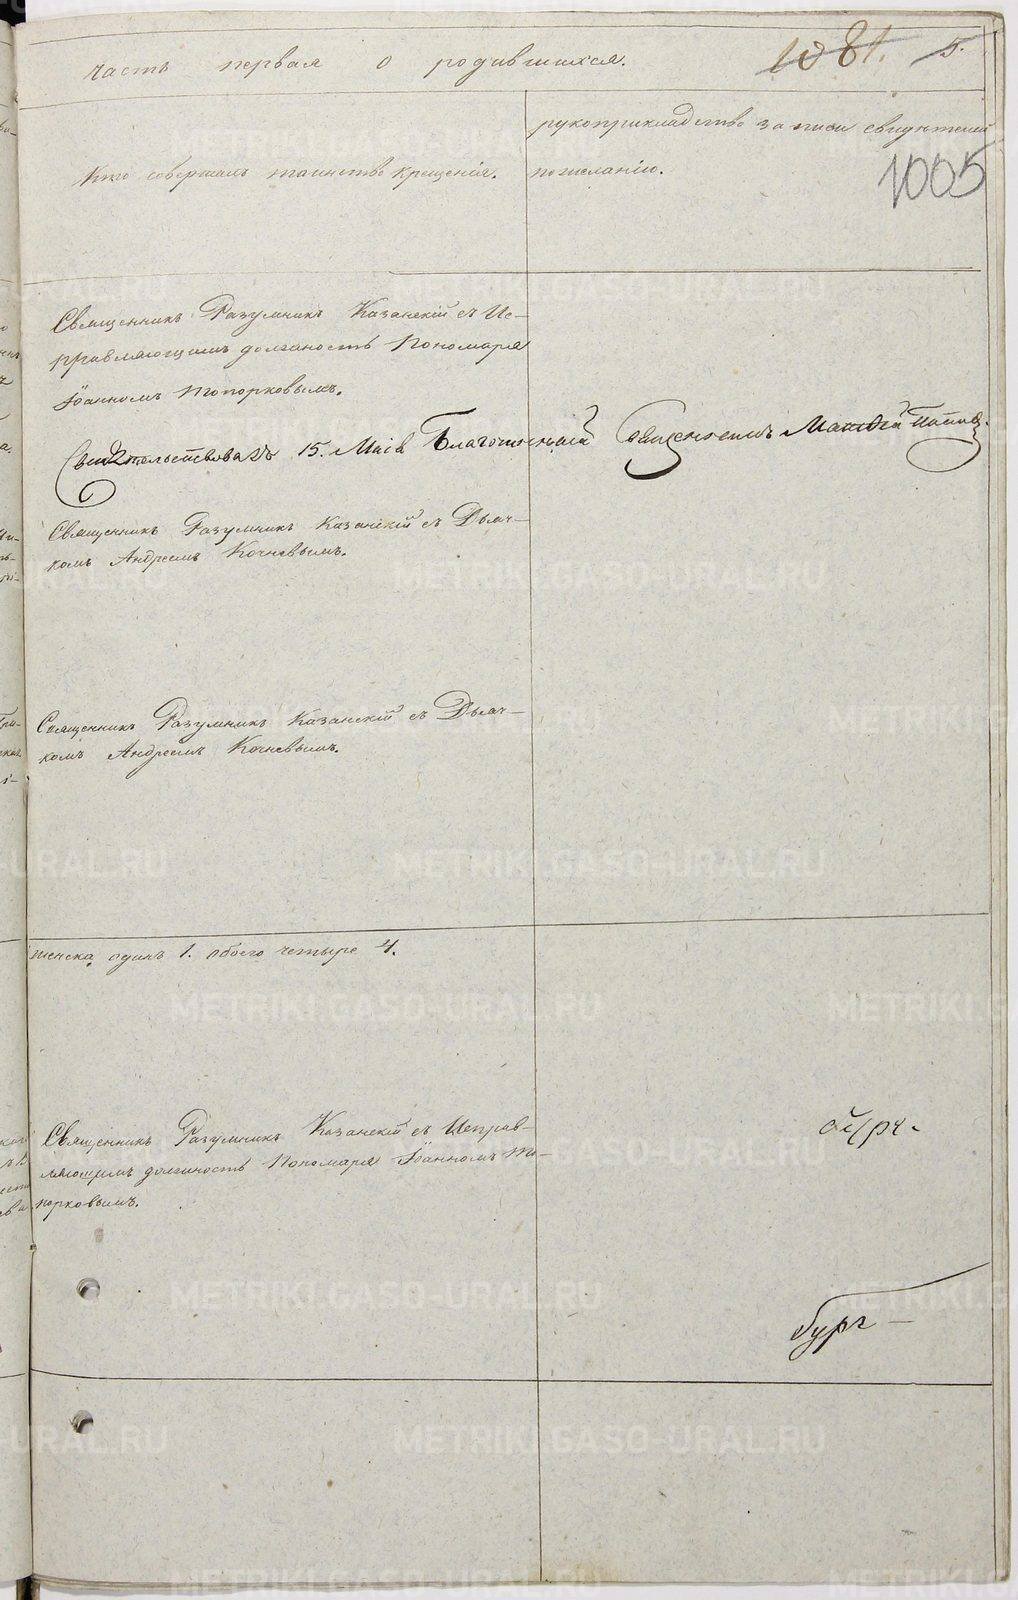 часть первая о родившихся.
1081. 5.
Кто совершалъ таинство крещенія.
рукоприкладство записи свидѣтелей
по желанію.
1005
Священникъ Разумникъ Казанскій съ Ис-
правляющимъ должность Пономаря
Іоанномъ Топорковымъ.
Свидѣтельствовалъ 15. Маія Благочинный Священникъ Матѳей Поповъ.
Священникъ Разумникъ Казанскій съ Дьяч-
комъ Андреемъ Кочневымъ.
Священникъ Разумникъ Казанскій съ Дьяч-
комъ Андреемъ Кочневымъ.
женска одинъ 1. обоего четыре 4.
Священникъ Разумникъ Казанскій съ Исправ-
ляющимъ должность Пономаря Іоанномъ То-
порковымъ.
METRIKI.GASO-URAL.RU